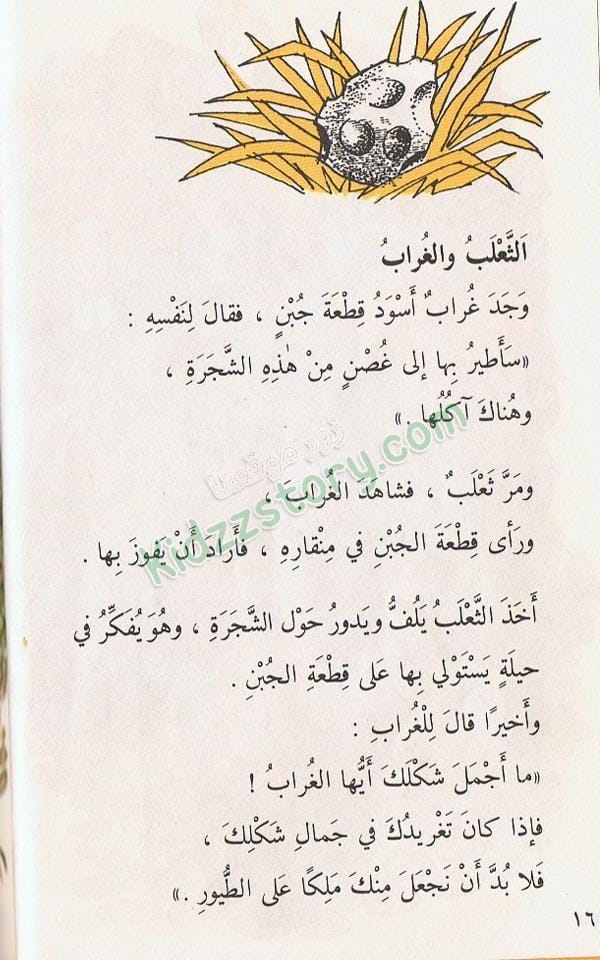 اَلثَّعْلَبُ والغُرابُ
وَجَدَ غُرابٌ أَسْوَدُ قِطْعَةَ جُبْنٍ ، فقالَ لِنَفْسِهِ :
«سَأَطيرُ بِها إلى غُصْنٍ مِنْ هٰذِهِ الشَّجَرَةِ ،
وهُناكَ آكُلُها .»
زوروا موقعنا
kidzzstory.com
ومَرَّ ثَعْلَبٌ ، فشاهَدَ الغُرابَ ،
ورَأى قِطْعَةَ الجُبْنِ في مِنْقارِهِ ، فَأَرادَ أَنْ يَفوزَ بِها .
أَخَذَ الثَّعْلَبُ يَلُفُّ ويَدورُ حَوْلَ الشَّجَرَةِ ، وهُوَ يُفَكِّرُ في
حيلَةٍ يَسْتَوْلي بِها عَلى قِطْعَةِ الجُبْنِ .
وأَخيرًا قالَ لِلْغُرابِ :
«ما أَجْمَلَ شَكْلَكَ أَيُّها الغُرابُ !
فإذا كانَ تَغْريدُكَ في جَمالِ شَكْلِكَ ،
فَلا بُدَّ أَنْ نَجْعَلَ مِنْكَ مَلِكًا عَلى الطُّيورِ .»
١٦